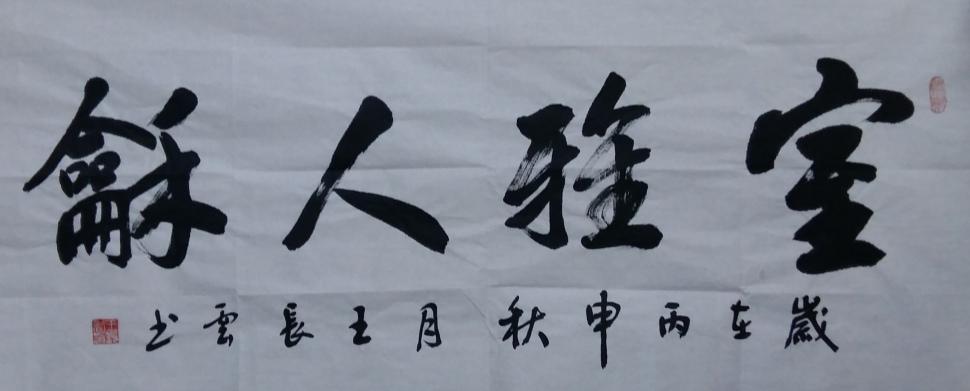 室雅人龢
歲在丙申秋月王長雲书